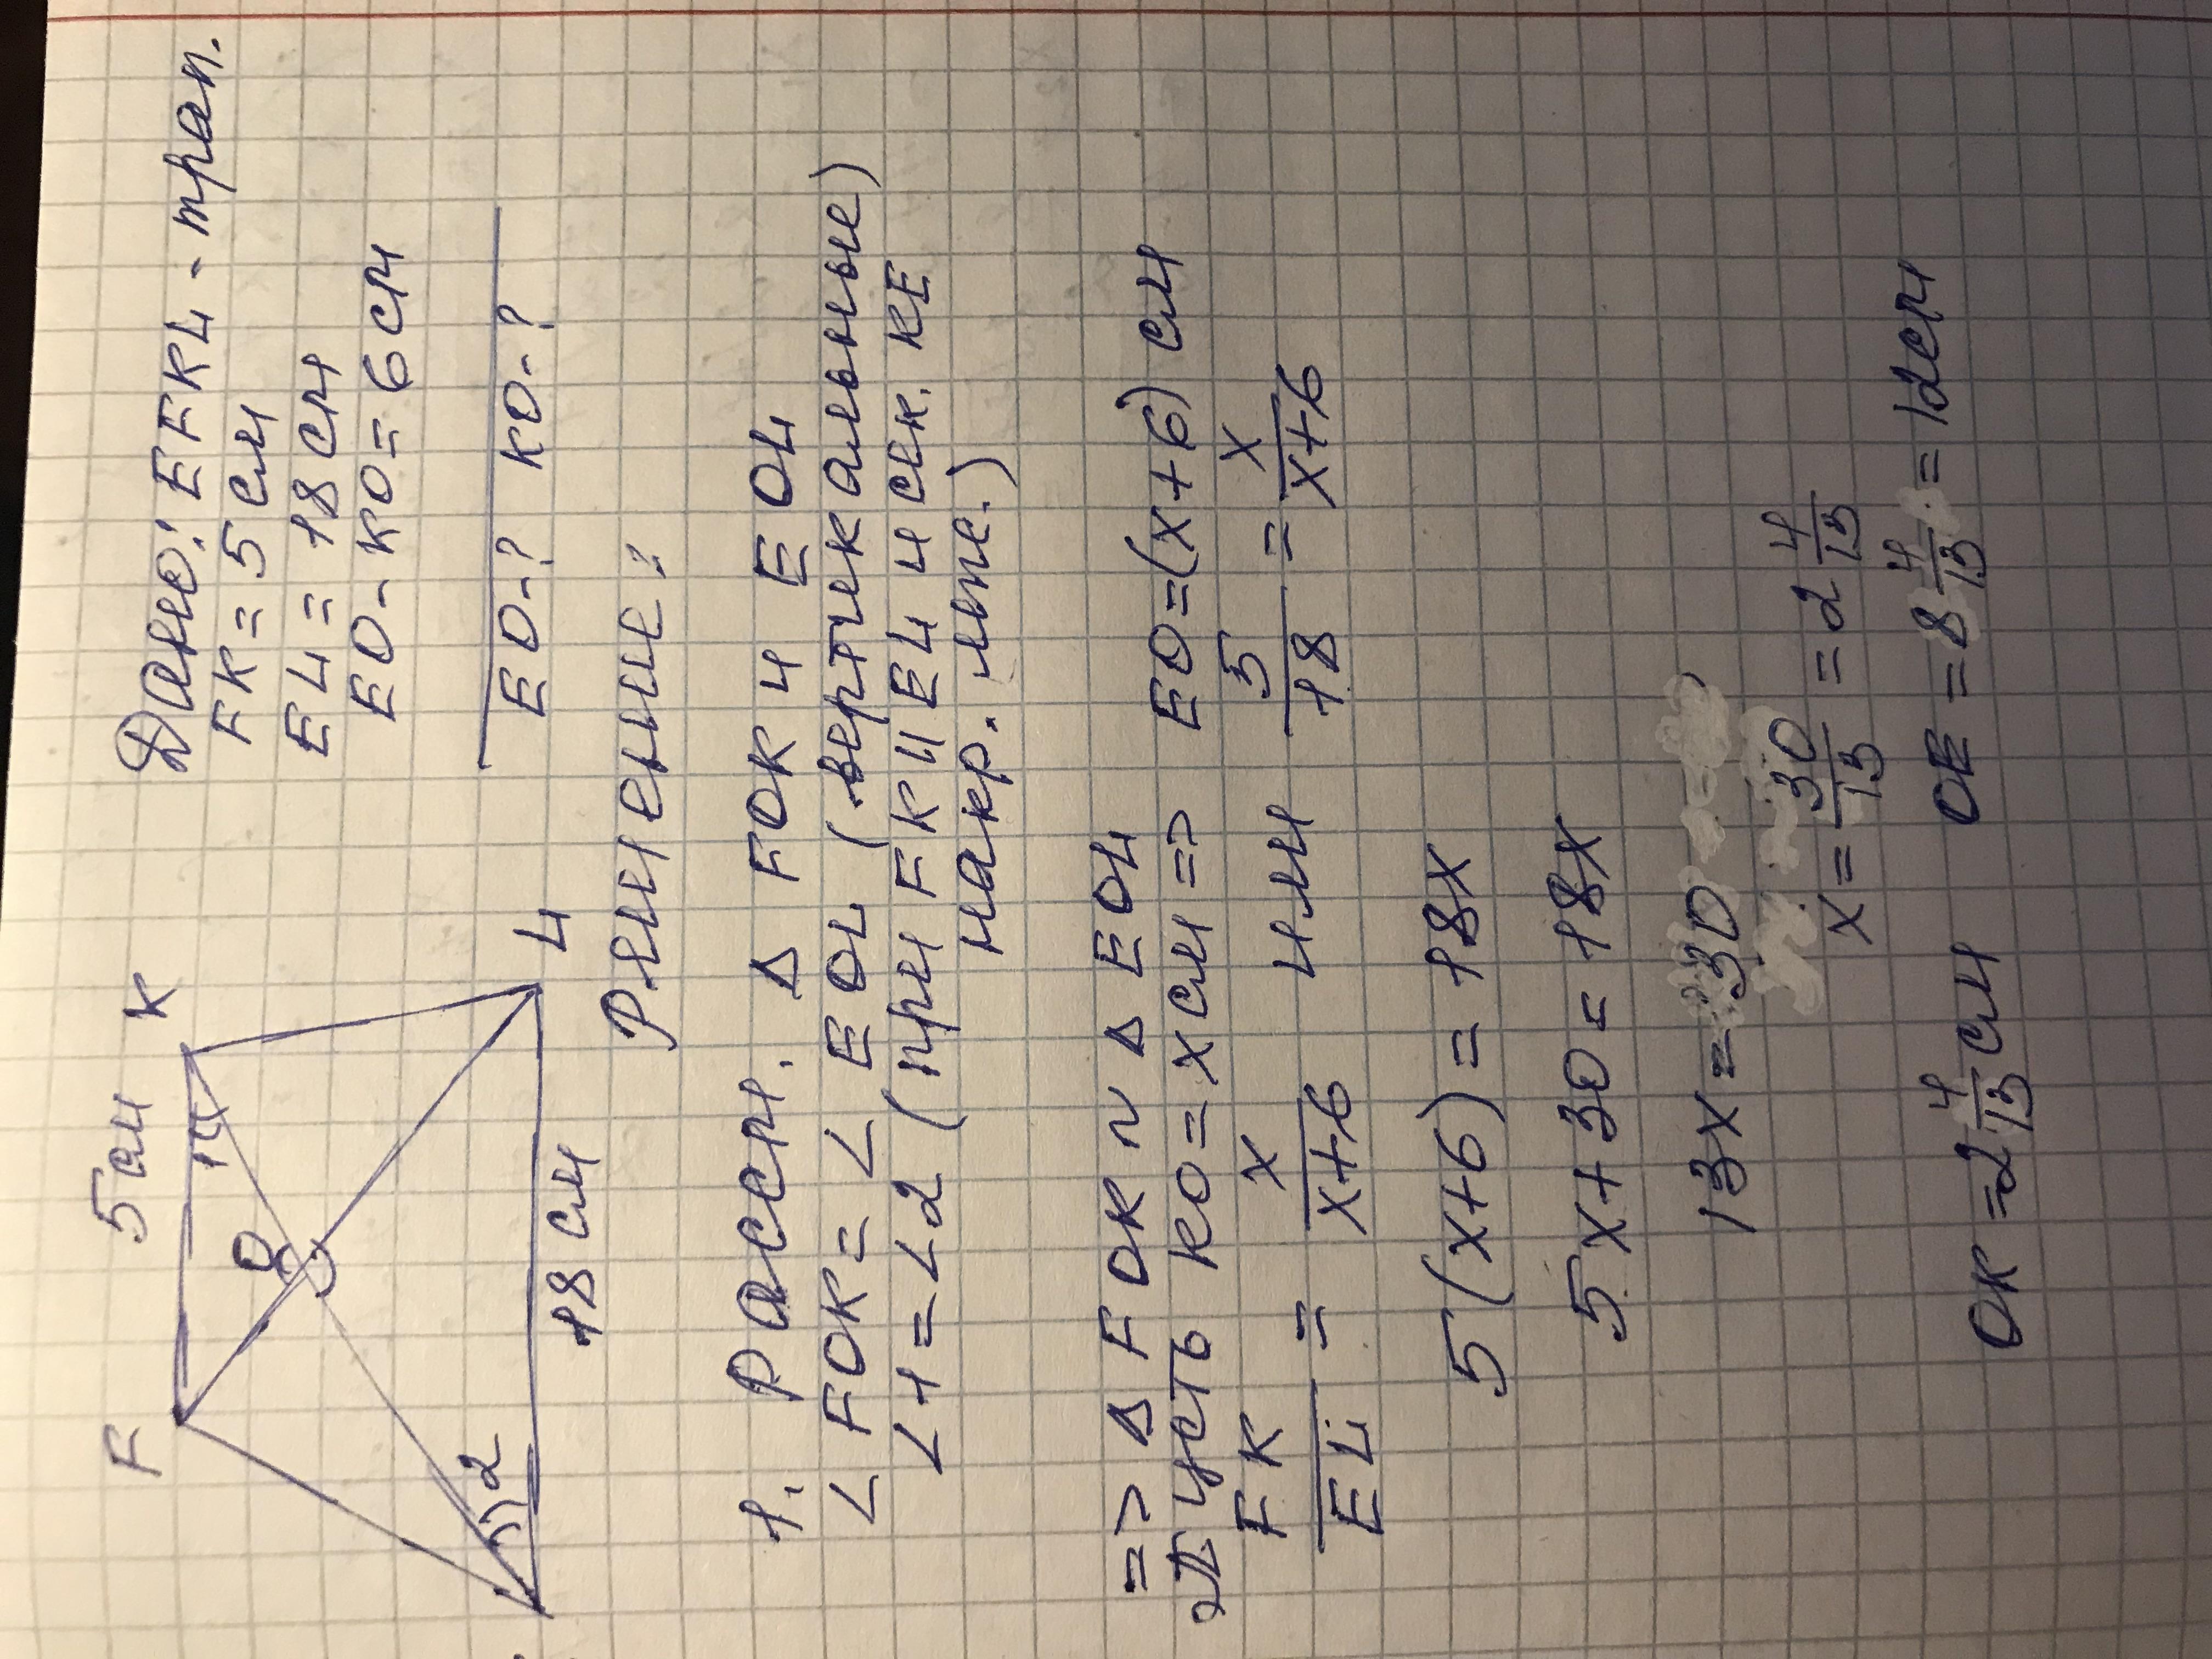 F 5 см K
Дано: EFKL - трап.
FK = 5 см
EL = 18 см
EO - KO = 6 см
EO - ? KO - ?
O
1
2
L
18 см
Решение:
1. Рассм. Δ FOK и EOL
∠ FOK = ∠ EOL (вертикальные)
∠1 = ∠2 (при FK || EL и сек. KE
накр. леж.)
=> Δ FOK ~ Δ EOL
Пусть KO = x см => EO = (x+6) см
FK/EL = x/x+6 или 5/18 = x/x+6
5(x+6) = 18x
5x+30 = 18x
13x = 30
x = 30/13 = 2 4/13
OK = 2 4/13 см OE = 8 4/13 = 12 см